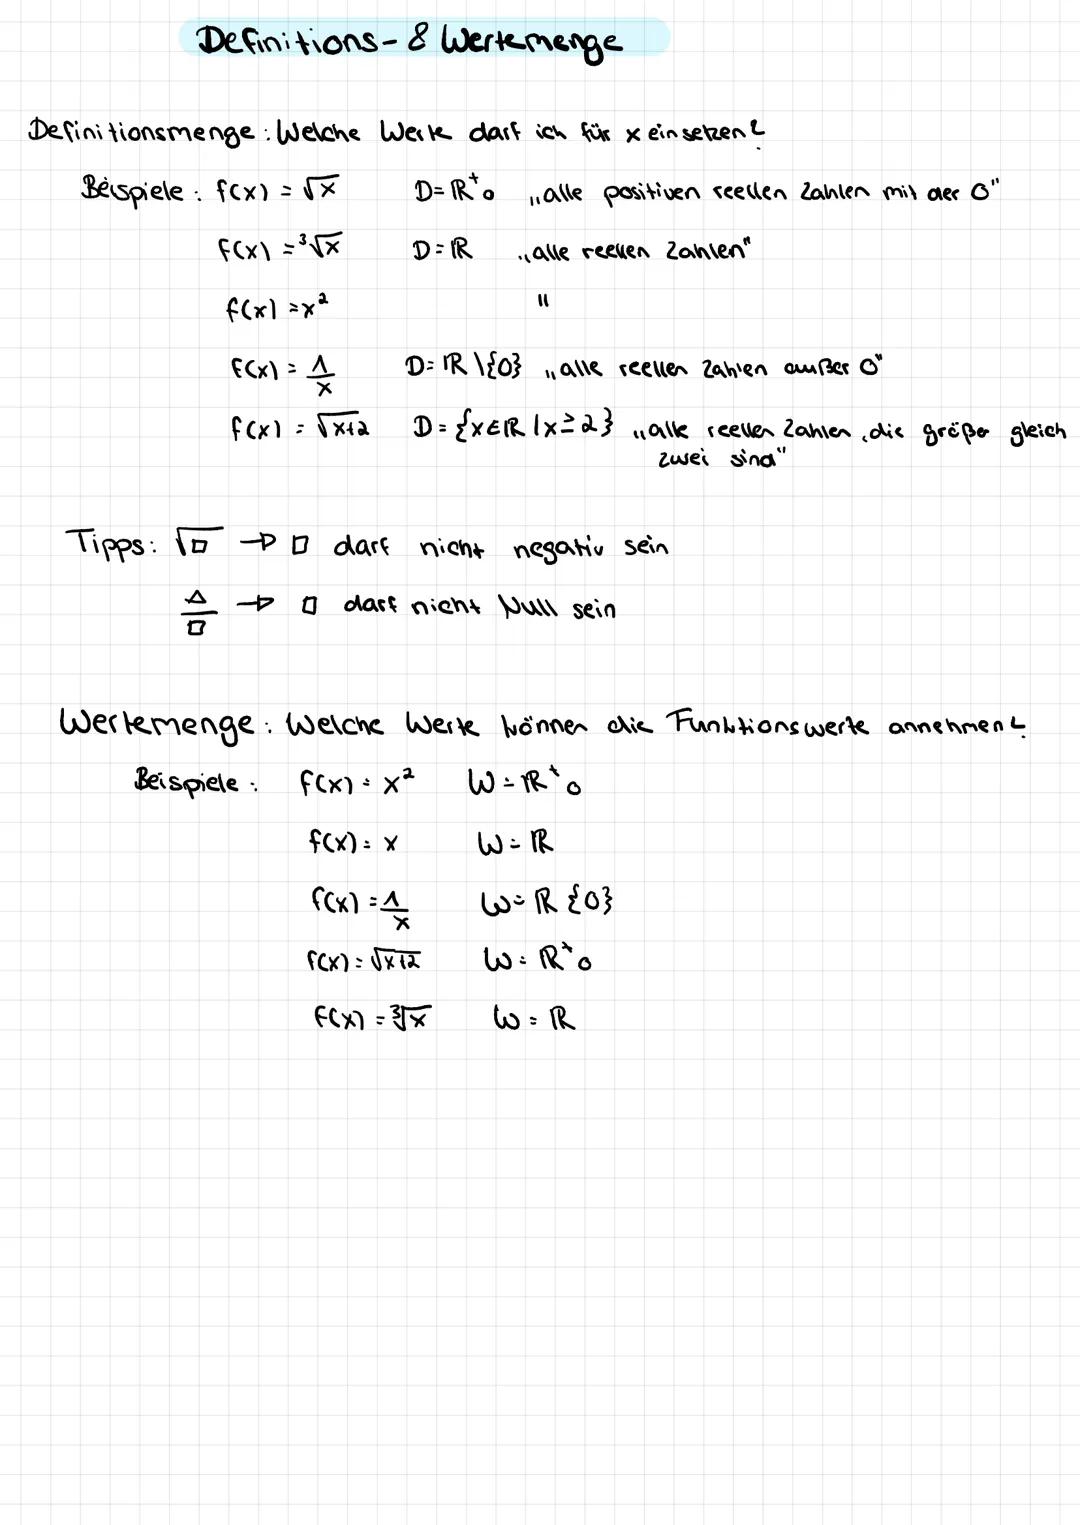 Definitions- & Wertemenge
Definitionsmenge: Welche Werte darf ich für x einsetzen?
Beispiele: f(x) = √x D=ℝ⁺₀ „alle positiven reellen Zahlen mit der 0"
f(x) = ³√x D=ℝ „alle reellen Zahlen"
f(x) = x² "
f(x) = 1/x D=ℝ\{0} „alle reellen Zahlen außer 0"
f(x) = √x+2 D={x∈ℝ|x≥2} „alle reellen Zahlen, die größer gleich
zwei sind"
Tipps: √□ → □ darf nicht negativ sein
△/□ → □ darf nicht Null sein
Wertemenge: Welche Werte können die Funktionswerte annehmen?
Beispiele: f(x) = x² W=ℝ⁺₀
f(x) = x W=ℝ
f(x) = 1/x W=ℝ {0}
f(x) = √x+2 W=ℝ⁺₀
f(x) = ³√x W=ℝ